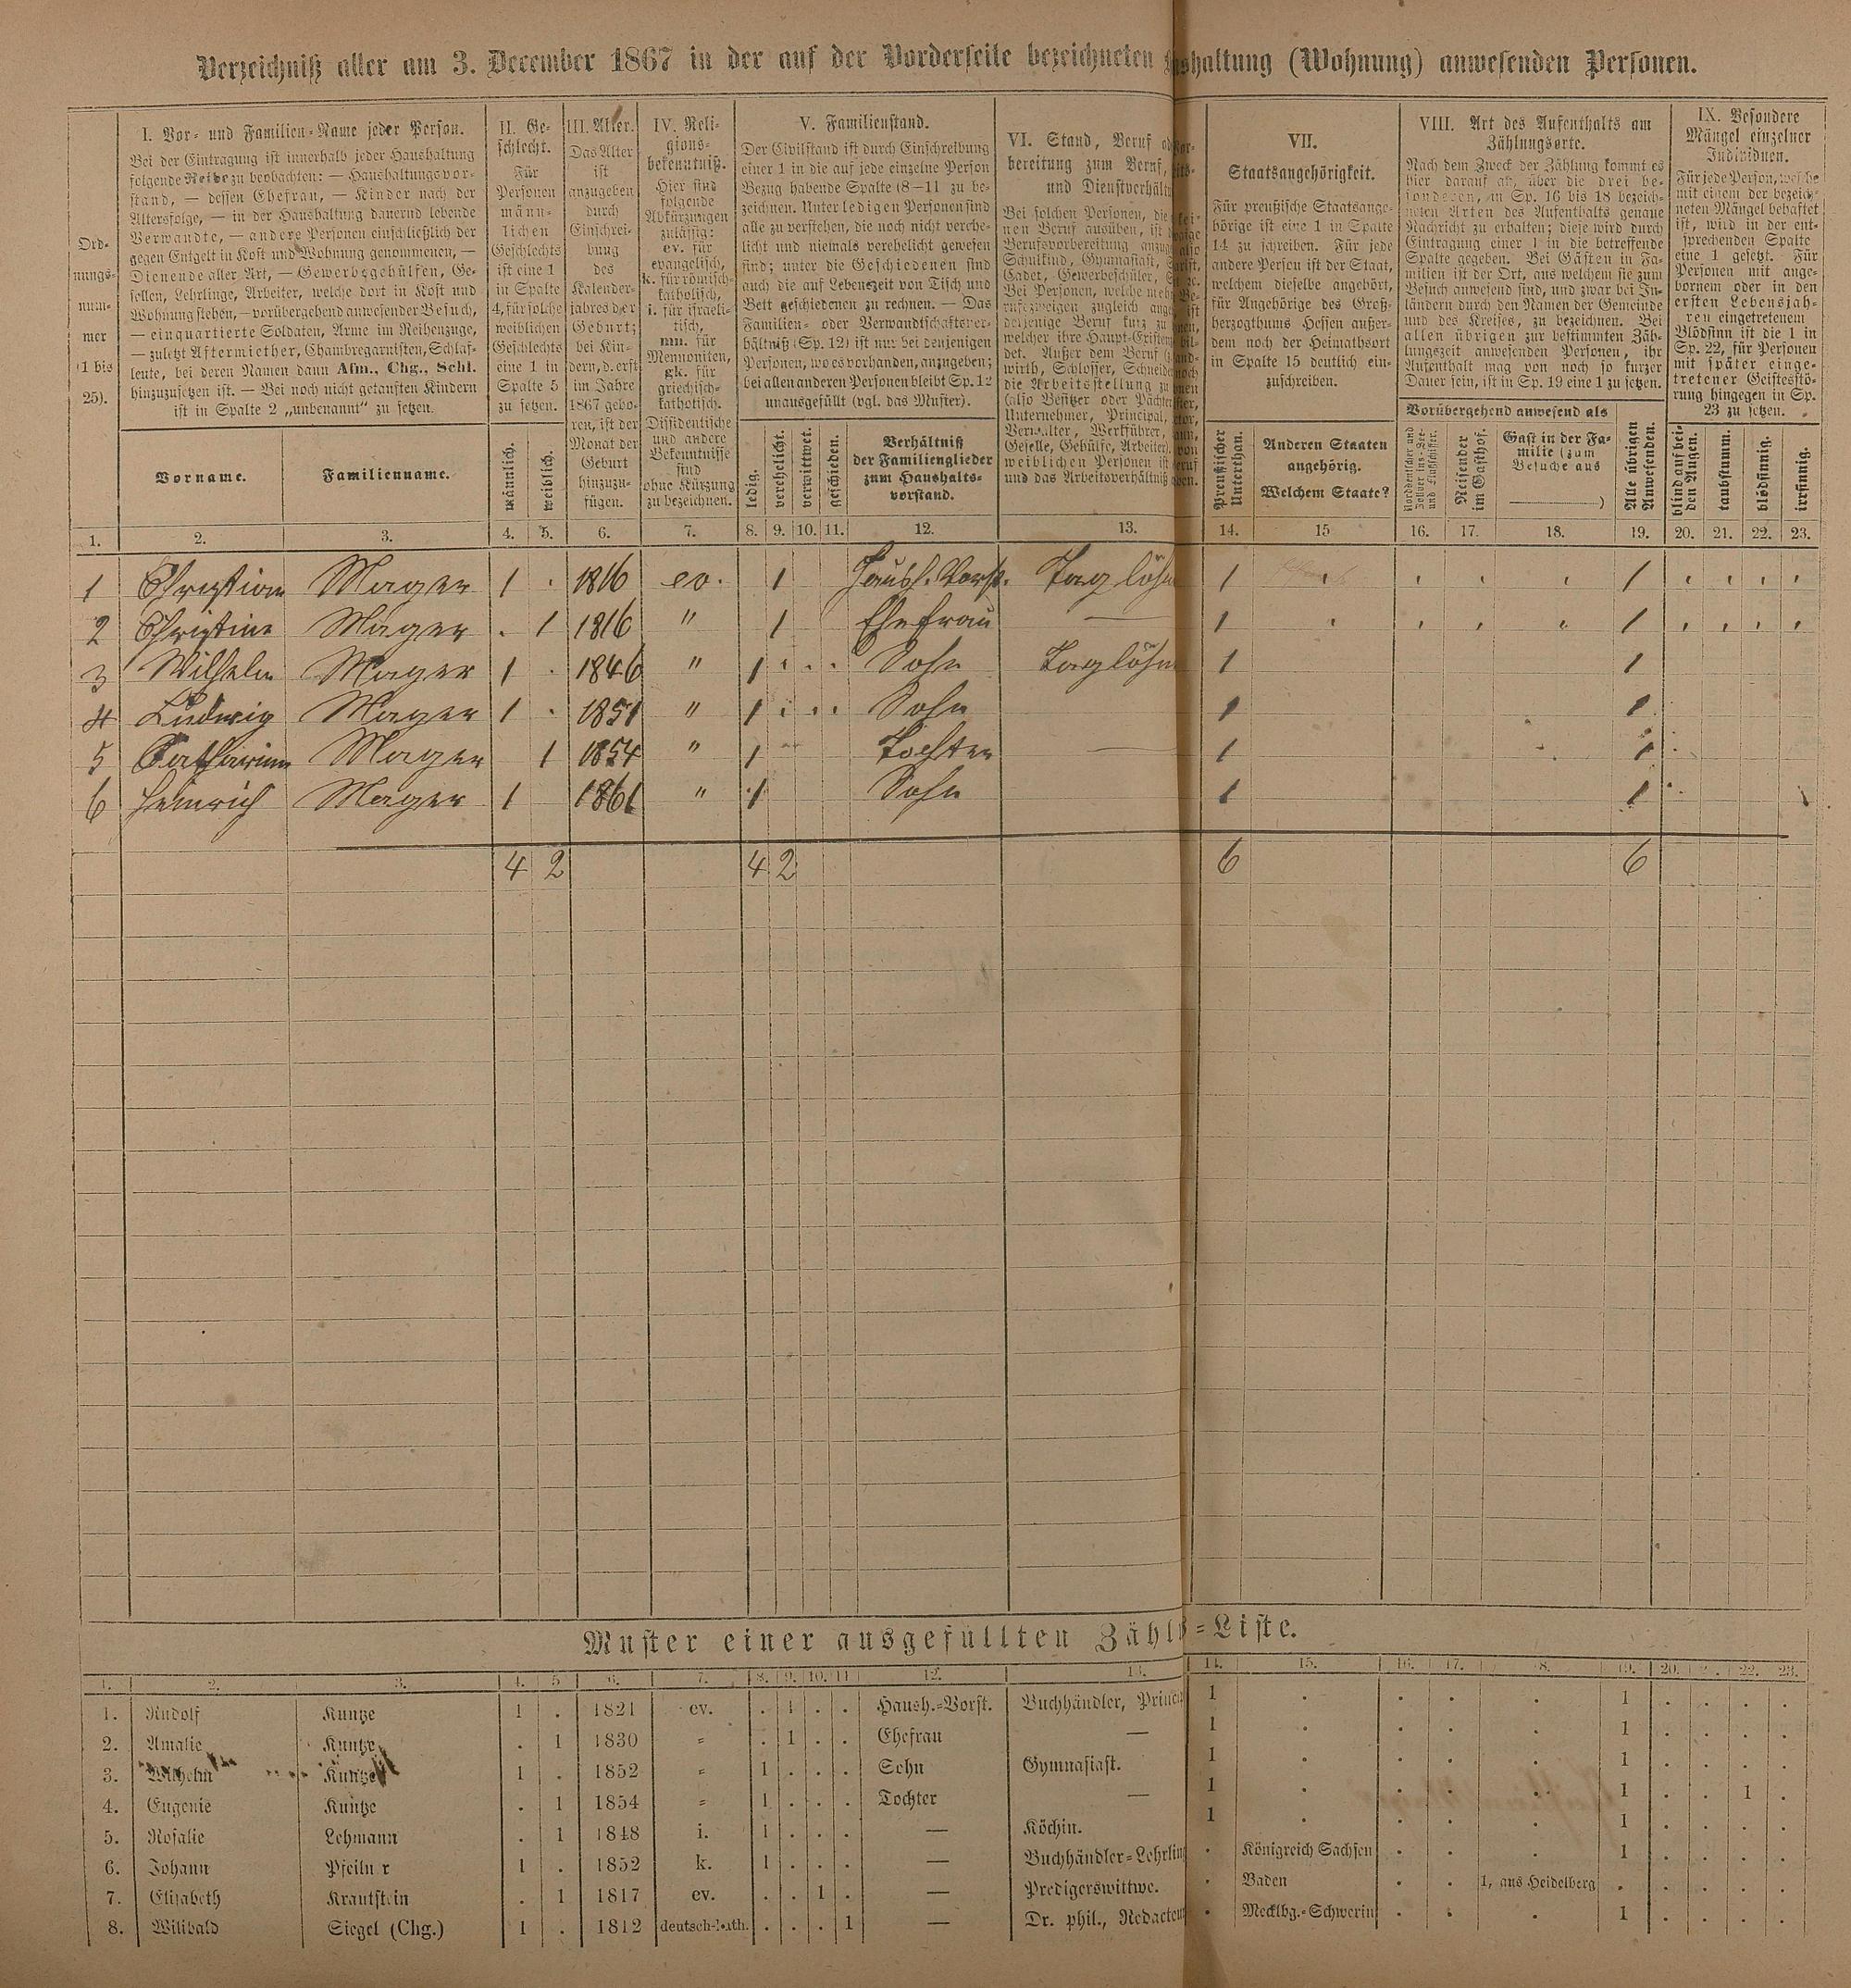 Verzeichniß aller am 3. December 1867 in der auf der Vorderseite bezeichneten shaltung (Wohnung) anwesenden Personen.
Ord-
nungs-
num-
mer
(1 bis
25).
I. Vor- und Familien-Name jeder Person.
Bei der Eintragung ist innerhalb jeder Haushaltung
folgende Reihe zu beobachten: — Haushaltungsvor-
stand, — dessen Ehefrau, — Kinder nach der
Altersfolge, — in der Haushaltung dauernd lebende
Verwandte, — andere Personen einschließlich der
gegen Entgelt in Kost und Wohnung genommenen, —
Dienende aller Art, — Gewerbsgehülfen, Ge-
sellen, Lehrlinge, Arbeiter, welche dort in Kost und
Wohnung stehen, — vorübergehend anwesender Besuch,
— einquartierte Soldaten, Arme im Reihenzuge,
— zuletzt Aftermiether, Chambregarnisten, Schlaf-
leute, bei deren Namen dann Afm., Chg., Schl.
hinzuzusetzen ist. — Bei noch nicht getauften Kindern
ist in Spalte 2 „unbenannt“ zu setzen.
Vorname.
Familienname.
II. Ge-
schlecht.
Für
Personen
männ-
lichen
Geschlechts
ist eine 1
in Spalte
4, für solche
weiblichen
Geschlechts
eine 1 in
Spalte 5
zu setzen.
männlich.
weiblich.
III. Alter.
Das Alter
ist
anzugeben
durch
Einschrei-
bung
des
Kalender-
jahres der
Geburt;
bei Kin-
dern, d. erst
im Jahre
1867 gebo-
ren, ist der
Monat der
Geburt
hinzuzu-
fügen.
IV. Reli-
gions-
bekenntniß.
Hier sind
folgende
Abkürzungen
zulässig:
ev. für
evangelisch,
k. für römisch-
katholisch,
i. für israeli-
tisch,
mn. für
Mennoniten,
gk. für
griechisch-
katholisch.
Dissidentische
und andere
Bekenntnisse
sind
ohne Kürzung
zu bezeichnen.
V. Familienstand.
Der Civilstand ist durch Einschreibung
einer 1 in die auf jede einzelne Person
Bezug habende Spalte (8—11 zu be-
zeichnen. Unter ledigen Personen sind
alle zu verstehen, die noch nicht verehe-
licht und niemals verehelicht gewesen
sind; unter die Geschiedenen sind
auch die auf Lebenszeit von Tisch und
Bett geschiedenen zu rechnen. — Das
Familien- oder Verwandtschaftsver-
hältniß (Sp. 12) ist nur bei denjenigen
Personen, wo es vorhanden, anzugeben;
bei allen anderen Personen bleibt Sp. 12
unausgefüllt (vgl. das Muster).
ledig.
verehelicht.
verwittwet.
geschieden.
Verhältniß
der Familienglieder
zum Haushalts-
vorstand.
VI. Stand, Beruf
bereitung zum Beruf,
und Dienstverhält
Bei solchen Personen, die
nen Beruf ausüben, ist
Berufsvorbereitung
Schulkind, Gymnasiast,
Cadet, Gewerbeschüler,
Bei Personen, welche
rufszweigen zugleich
derjenige Beruf kurz zu
welcher ihre Haupt-Existen
det. Außer dem Beruf
wirth, Schlosser, Schneide
die Arbeitsstellung zu
(also Besitzer oder Pächter
Unternehmer, Principal,
Verwalter, Werkführer,
Geselle, Gehülfe, Arbeiter).
weiblichen Personen ist
und das Arbeitsverhältniß
VII.
Staatsangehörigkeit.
Für preußische Staatsange-
hörige ist eine 1 in Spalte
14 zu schreiben. Für jede
andere Person ist der Staat,
welchem dieselbe angehört,
für Angehörige des Groß-
herzogthums Hessen außer-
dem noch der Heimathsort
in Spalte 15 deutlich ein-
zuschreiben.
Preußischer
Unterthan.
Anderen Staaten
angehörig.
Welchem Staate?
VIII. Art des Aufenthalts am
Zählungsorte.
Nach dem Zweck der Zählung kommt es
hier darauf an, über die drei be-
sonderen, in Sp. 16 bis 18 bezeich-
neten Arten des Aufenthalts genaue
Nachricht zu erhalten; diese wird durch
Eintragung einer 1 in die betreffende
Spalte gegeben. Bei Gästen in Fa-
milien ist der Ort, aus welchem sie zum
Besuch anwesend sind, und zwar bei In-
ländern durch den Namen der Gemeinde
und des Kreises, zu bezeichnen. Bei
allen übrigen zur bestimmten Zäh-
lungszeit anwesenden Personen, ihr
Aufenthalt mag von noch so kurzer
Dauer sein, ist in Sp. 19 eine 1 zu setzen.
Vorübergehend anwesend als
Norddeutscher und
Zollver.ins-See-
und Flußschiffer.
Reisender
im Gasthof.
Gast in der Fa-
milie (zum
Besuche aus
)
Alle übrigen
Anwesenden.
IX. Besondere
Mängel einzelner
Individuen.
Für jede Person, welche
mit einem der bezeich-
neten Mängel behaftet
ist, wird in der ent-
sprechenden Spalte
eine 1 gesetzt. Für
Personen mit ange-
bornem oder in den
ersten Lebensjah-
ren eingetretenem
Blödsinn ist die 1 in
Sp. 22, für Personen
mit später einge-
tretener Geistesstö-
rung hingegen in Sp.
23 zu setzen.
blind auf bei-
den Augen.
taubstumm.
blödsinnig.
irrsinnig.
1. 2. 3. 4. 5. 6. 7. 8. 9. 10. 11. 12. 13. 14. 15 16. 17. 18. 19. 20. 21. 22. 23.
1 Christian Mager 1 . 1816 ev. 1 Haush. Vorst. Taglöhn 1 1
2 Christine Mager . 1 1816 " 1 Ehefrau — 1 1
3 Wilhelm Mager 1 . 1846 " 1 . . . Sohn Taglöhn 1 1
4 Ludwig Mager 1 . 1851 " 1 . . . Sohn 1 1
5 Catharine Mager 1 1854 " 1 Tochter — 1 1
6 Heinrich Mager 1 1861 " 1 Sohn 1 1
4 2 4 2 6 6
Muster einer ausgefüllten Zähl=Liste.
1. 2. 3. 4. 5 6. 7. 8. 9. 10. 11 12. 13. 14. 15. 16. 17. 18. 19. 20. 2. 22. 23.
1. Rudolf Kuntze 1 . 1821 ev. . 1 . . Haush.-Vorst. Buchhändler, Princi 1 . . . . 1 . . . .
2. Amalie Kuntze . 1 1830 = . 1 . . Ehefrau — 1 . . . . 1 . . . .
3. Wilhelm Kuntze 1 . 1852 = 1 . . . Sohn Gymnasiast. 1 . . . . 1 . . . .
4. Eugenie Kuntze . 1 1854 = 1 . . . Tochter — 1 . . . . 1 . . 1 .
5. Rosalie Lehmann . 1 1848 i. 1 . . . — Köchin. 1 . . . . 1 . . . .
6. Johann Pfeiln r 1 . 1852 k. 1 . . . — Buchhändler-Lehrlin . Königreich Sachsen . . . 1 . . . .
7. Elisabeth Krautstein . 1 1817 ev. . . 1 . — Predigerswittwe. . Baden . . 1, aus Heidelberg . . . . .
8. Wilibald Siegel (Chg.) 1 . 1812 deutsch-kath. . . . 1 — Dr. phil., Redacteu . Mecklbg.-Schwerin . . . 1 . . . .